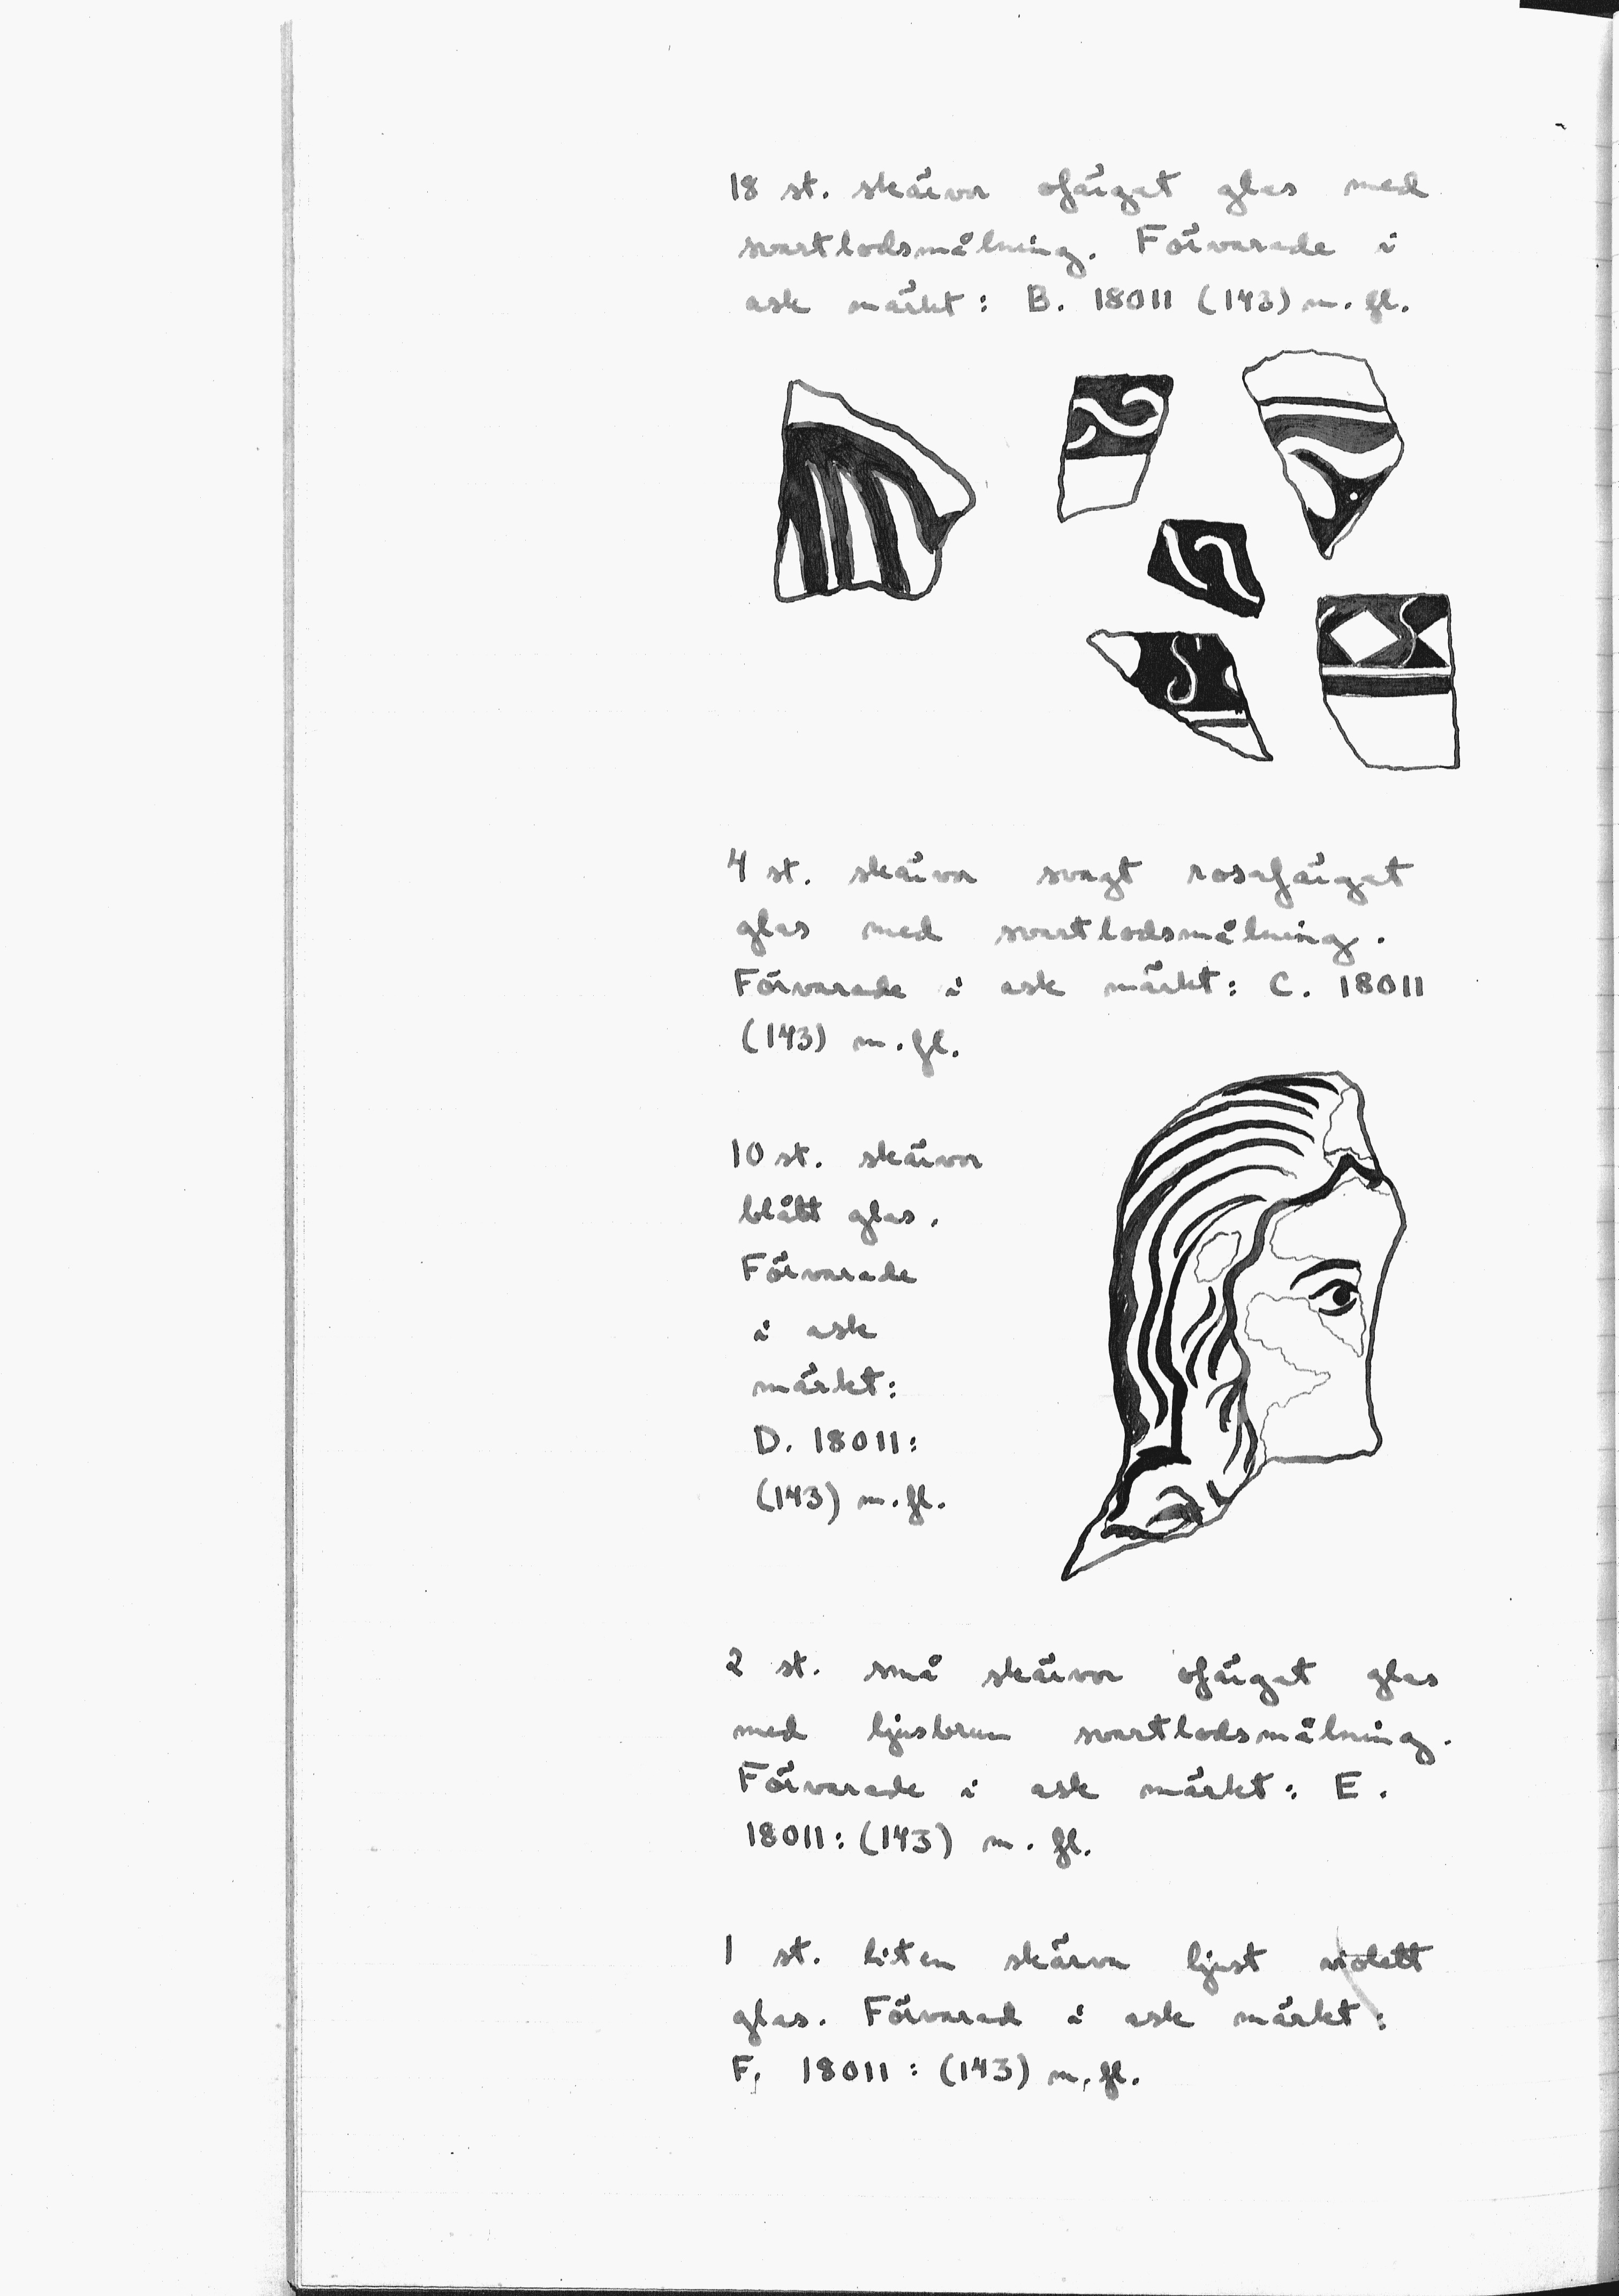 18 st. skärvor ofärgat glas med
svartlodsmålning. Förvarade i
ask märkt: B. 18011 (143) m. fl.
4 st. skärvor svagt rosafärgat
glas med svartlodsmålning.
Förvarade i ask märkt: C. 18011
(143) m. fl.
10 st. skärvor
blått glas.
Förvarade
i ask
märkt:
D. 18011:
(143) m. fl.
2 st. små skärvor ofärgat glas
med ljusbrun svartlodsmålning.
Förvarade i ask märkt: E.
18011: (143) m. fl.
1 st. liten skärva ljust violett
glas. Förvarad i ask märkt:
F. 18011: (143) m. fl.